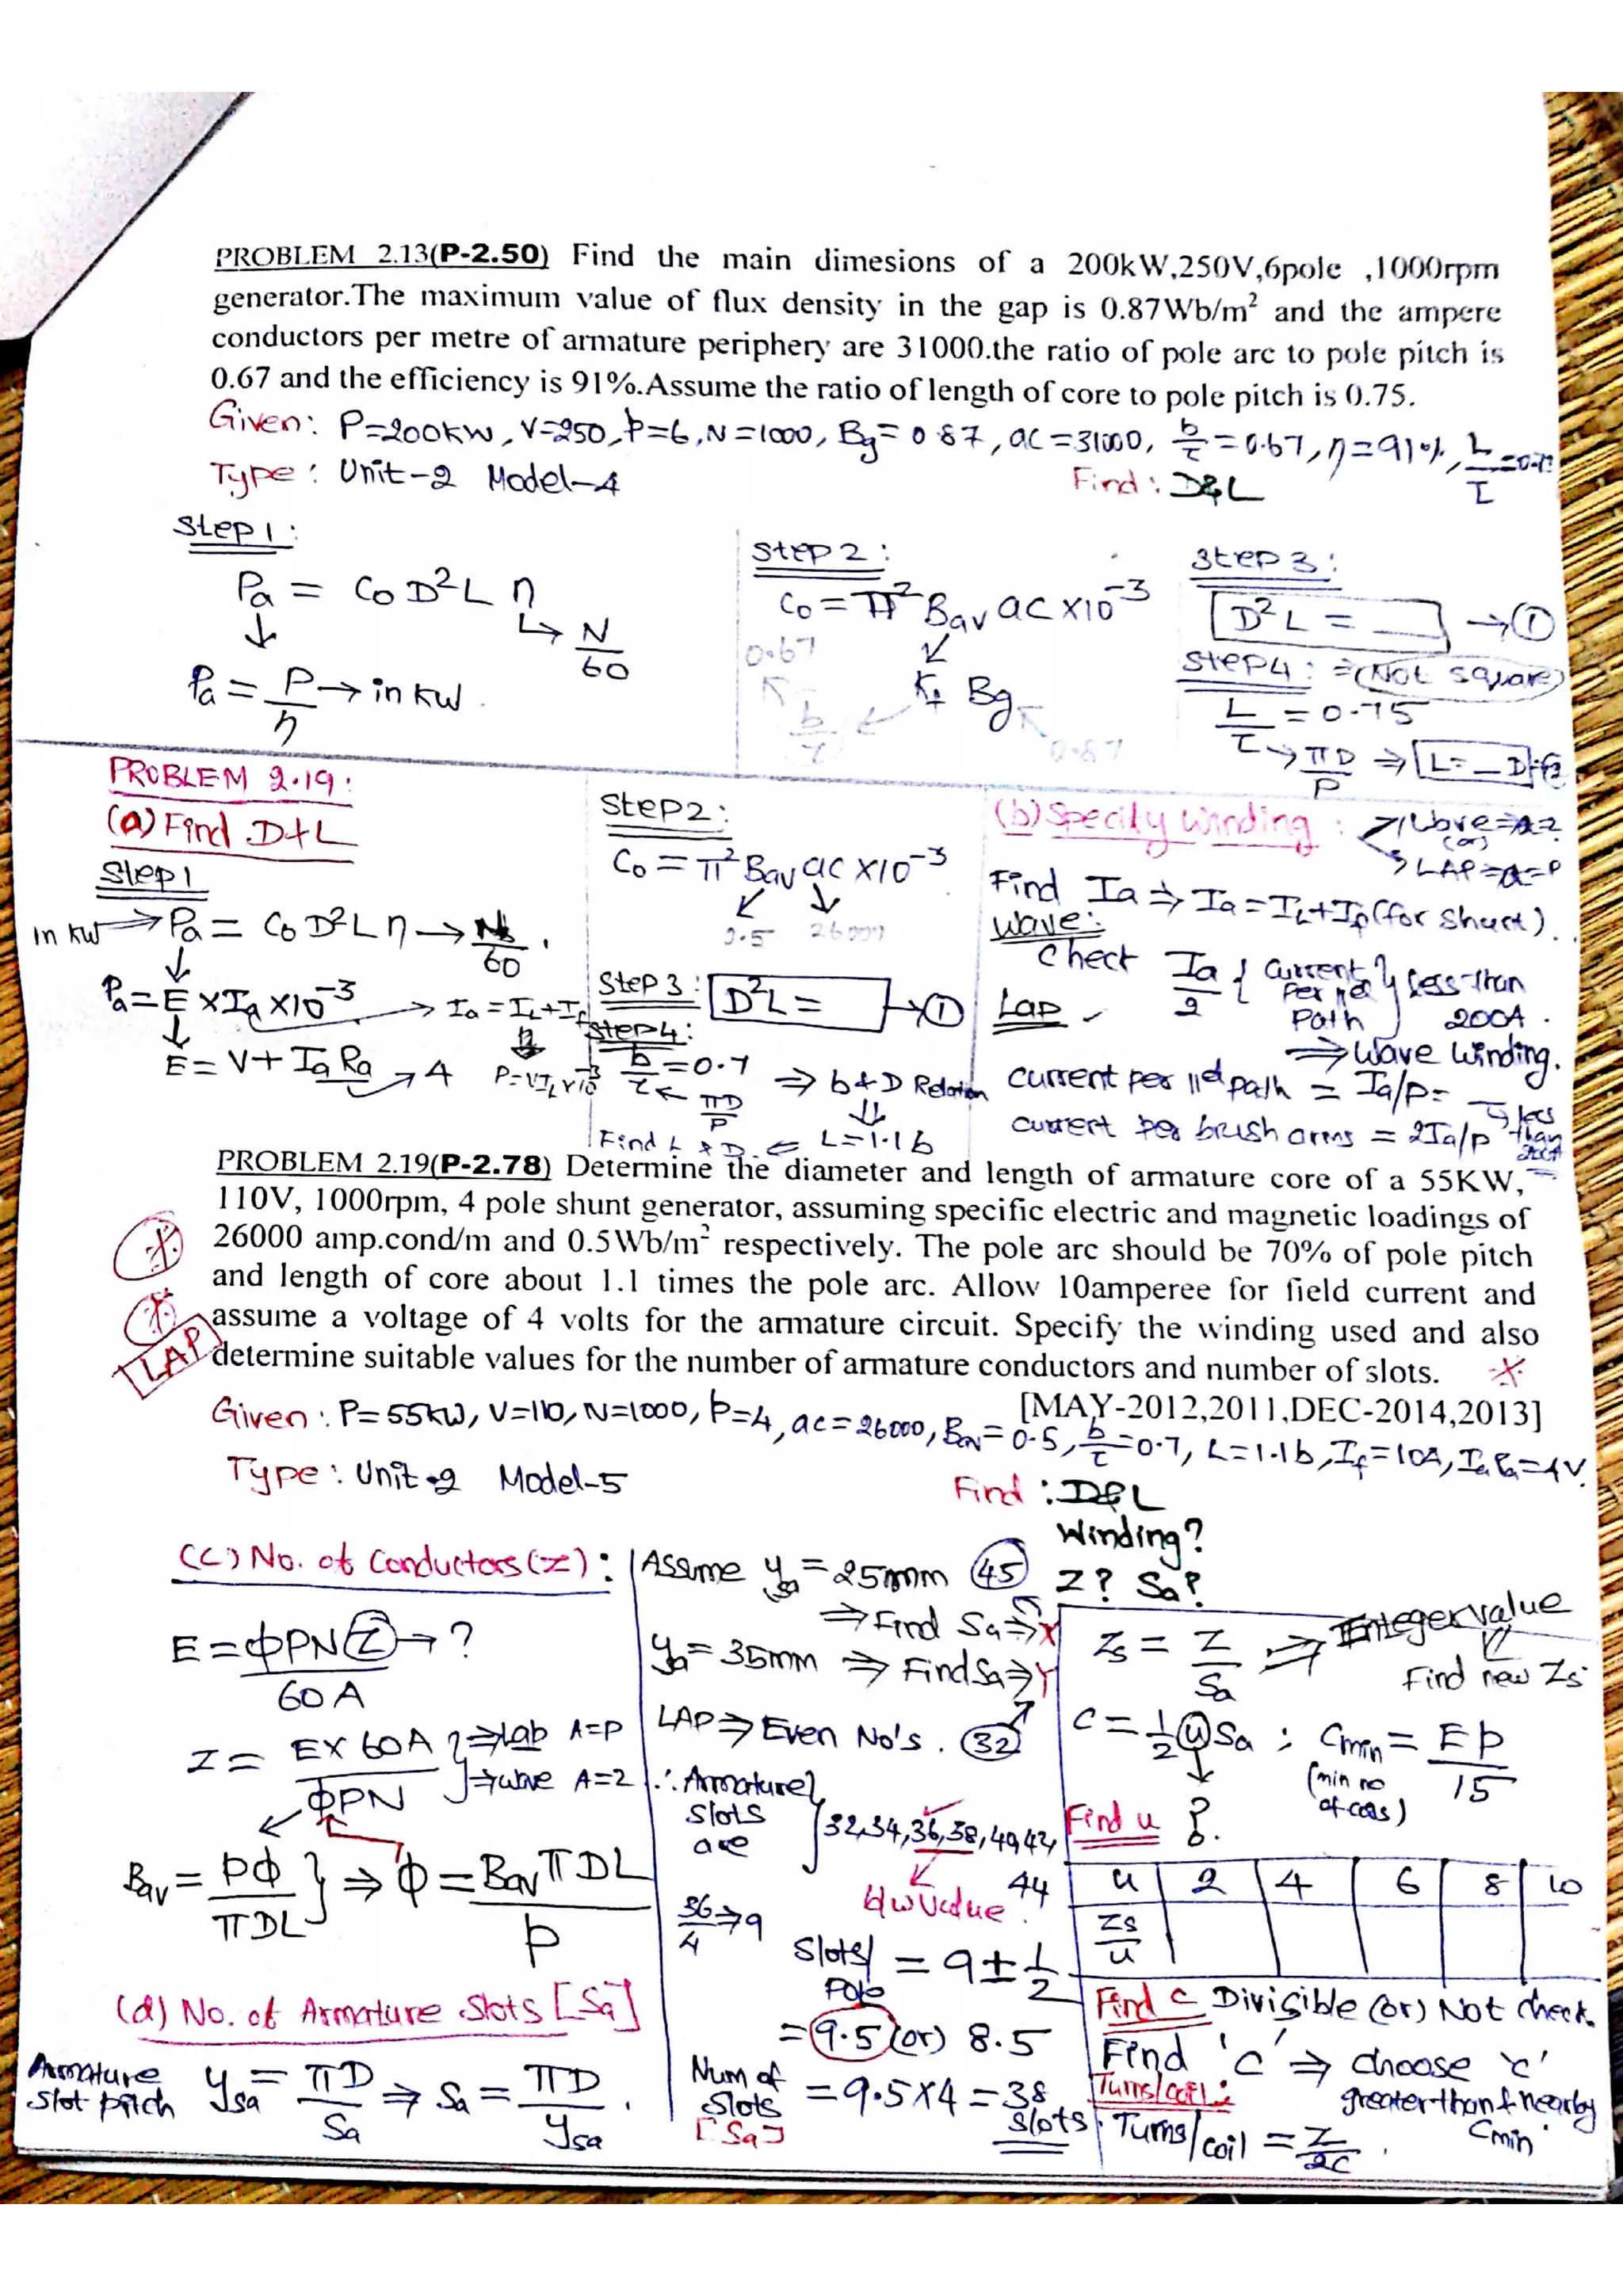 PROBLEM 2.13(P-2.50) Find the main dimesions of a 200kW,250V,6pole ,1000rpm
generator.The maximum value of flux density in the gap is 0.87Wb/m² and the ampere
conductors per metre of armature periphery are 31000.the ratio of pole arc to pole pitch is
0.67 and the efficiency is 91%.Assume the ratio of length of core to pole pitch is 0.75.
Given: P=200kW, V=250, p=6, N=1000, Bg=0.87, ac=31000, b/τ=0.67, η=91%, L/τ=0.75
Type: Unit-2 Model-4
Find: D&L
Step 1:
Pa = Co D²L n
↳ N/60
Pa = P/η → in kW.
Step 2:
Co = π² Bav ac x10⁻³
0.67
Kf Bg
b/τ
0.87
Step 3:
D²L = __ → ①
Step 4: ⇒ (Not square)
L/τ = 0.75
τ → πD/P ⇒ L= _ D
PROBLEM 2.19:
(a) Find D & L
Step 1
in kW → Pa = Co D²L n → N/60
Pa = E x Ia x10⁻³ → Ia = IL+If
E = V + Ia Ra → 4
P=VIL x10⁻³
Step 2:
Co = π² Bav ac x10⁻³
0.5 26000
Step 3: D²L = → ①
Step 4:
b/τ = 0.7 ⇒ b & D Relation
πD/P
Find L & D ⇐ L=1.1b
(b) Specify Winding: → Wave=A=2
(or)
→ LAP=A=P
Find Ia ⇒ Ia = IL+If (for shunt).
Wave:
Check Ia/2 { current per ||el path } less than 200A.
⇒ Wave Winding.
Lap
current per ||el path = Ia/p = → less than 200A
current per brush arms = 2Ia/p
PROBLEM 2.19(P-2.78) Determine the diameter and length of armature core of a 55KW,
110V, 1000rpm, 4 pole shunt generator, assuming specific electric and magnetic loadings of
26000 amp.cond/m and 0.5Wb/m² respectively. The pole arc should be 70% of pole pitch
and length of core about 1.1 times the pole arc. Allow 10amperee for field current and
assume a voltage of 4 volts for the armature circuit. Specify the winding used and also
LAP
determine suitable values for the number of armature conductors and number of slots.
[MAY-2012,2011,DEC-2014,2013]
Given: P=55kW, V=110, N=1000, p=4, ac=26000, Bav=0.5, b/τ=0.7, L=1.1b, If=10A, IaRa=4V.
Type: Unit-2 Model-5
Find: D&L
Winding?
Z? Sa?
(c) No. of Conductors (z):
E = ΦPNZ/60A → ?
Z = Ex60A/ΦPN } ⇒ Lap A=P
⇒ wave A=2
Bav = pΦ/πDL } ⇒ Φ = Bav πDL/p
(d) No. of Armature Slots [Sa]
Armature slot pitch ysa = πD/Sa ⇒ Sa = πD/ysa.
Assume ysa = 25mm 45
⇒ Find Sa ⇒ X
ysa = 35mm ⇒ Find Sa ⇒ Y
LAP ⇒ Even No's. 32
∴ Armature slots are } 32,34,36,38,40,42, 44
b/w value.
36/4 ⇒ 9
Slots/Pole = 9 ± 1/2
= 9.5 (or) 8.5
Num of Slots = 9.5 x 4 = 38 slots.
[Sa]
Zs = Z/Sa ⇒ Integer value
Find new Zs
C = 1/2 u Sa ; Cmin = Ep/15
(min no of coils)
Find u ?
u 2 4 6 8 10
Zs/u
Find C Divisible (or) Not check.
Find 'c' ⇒ choose 'c' greater than & nearby Cmin.
Turns/coil:
Turns/coil = Z/2C.